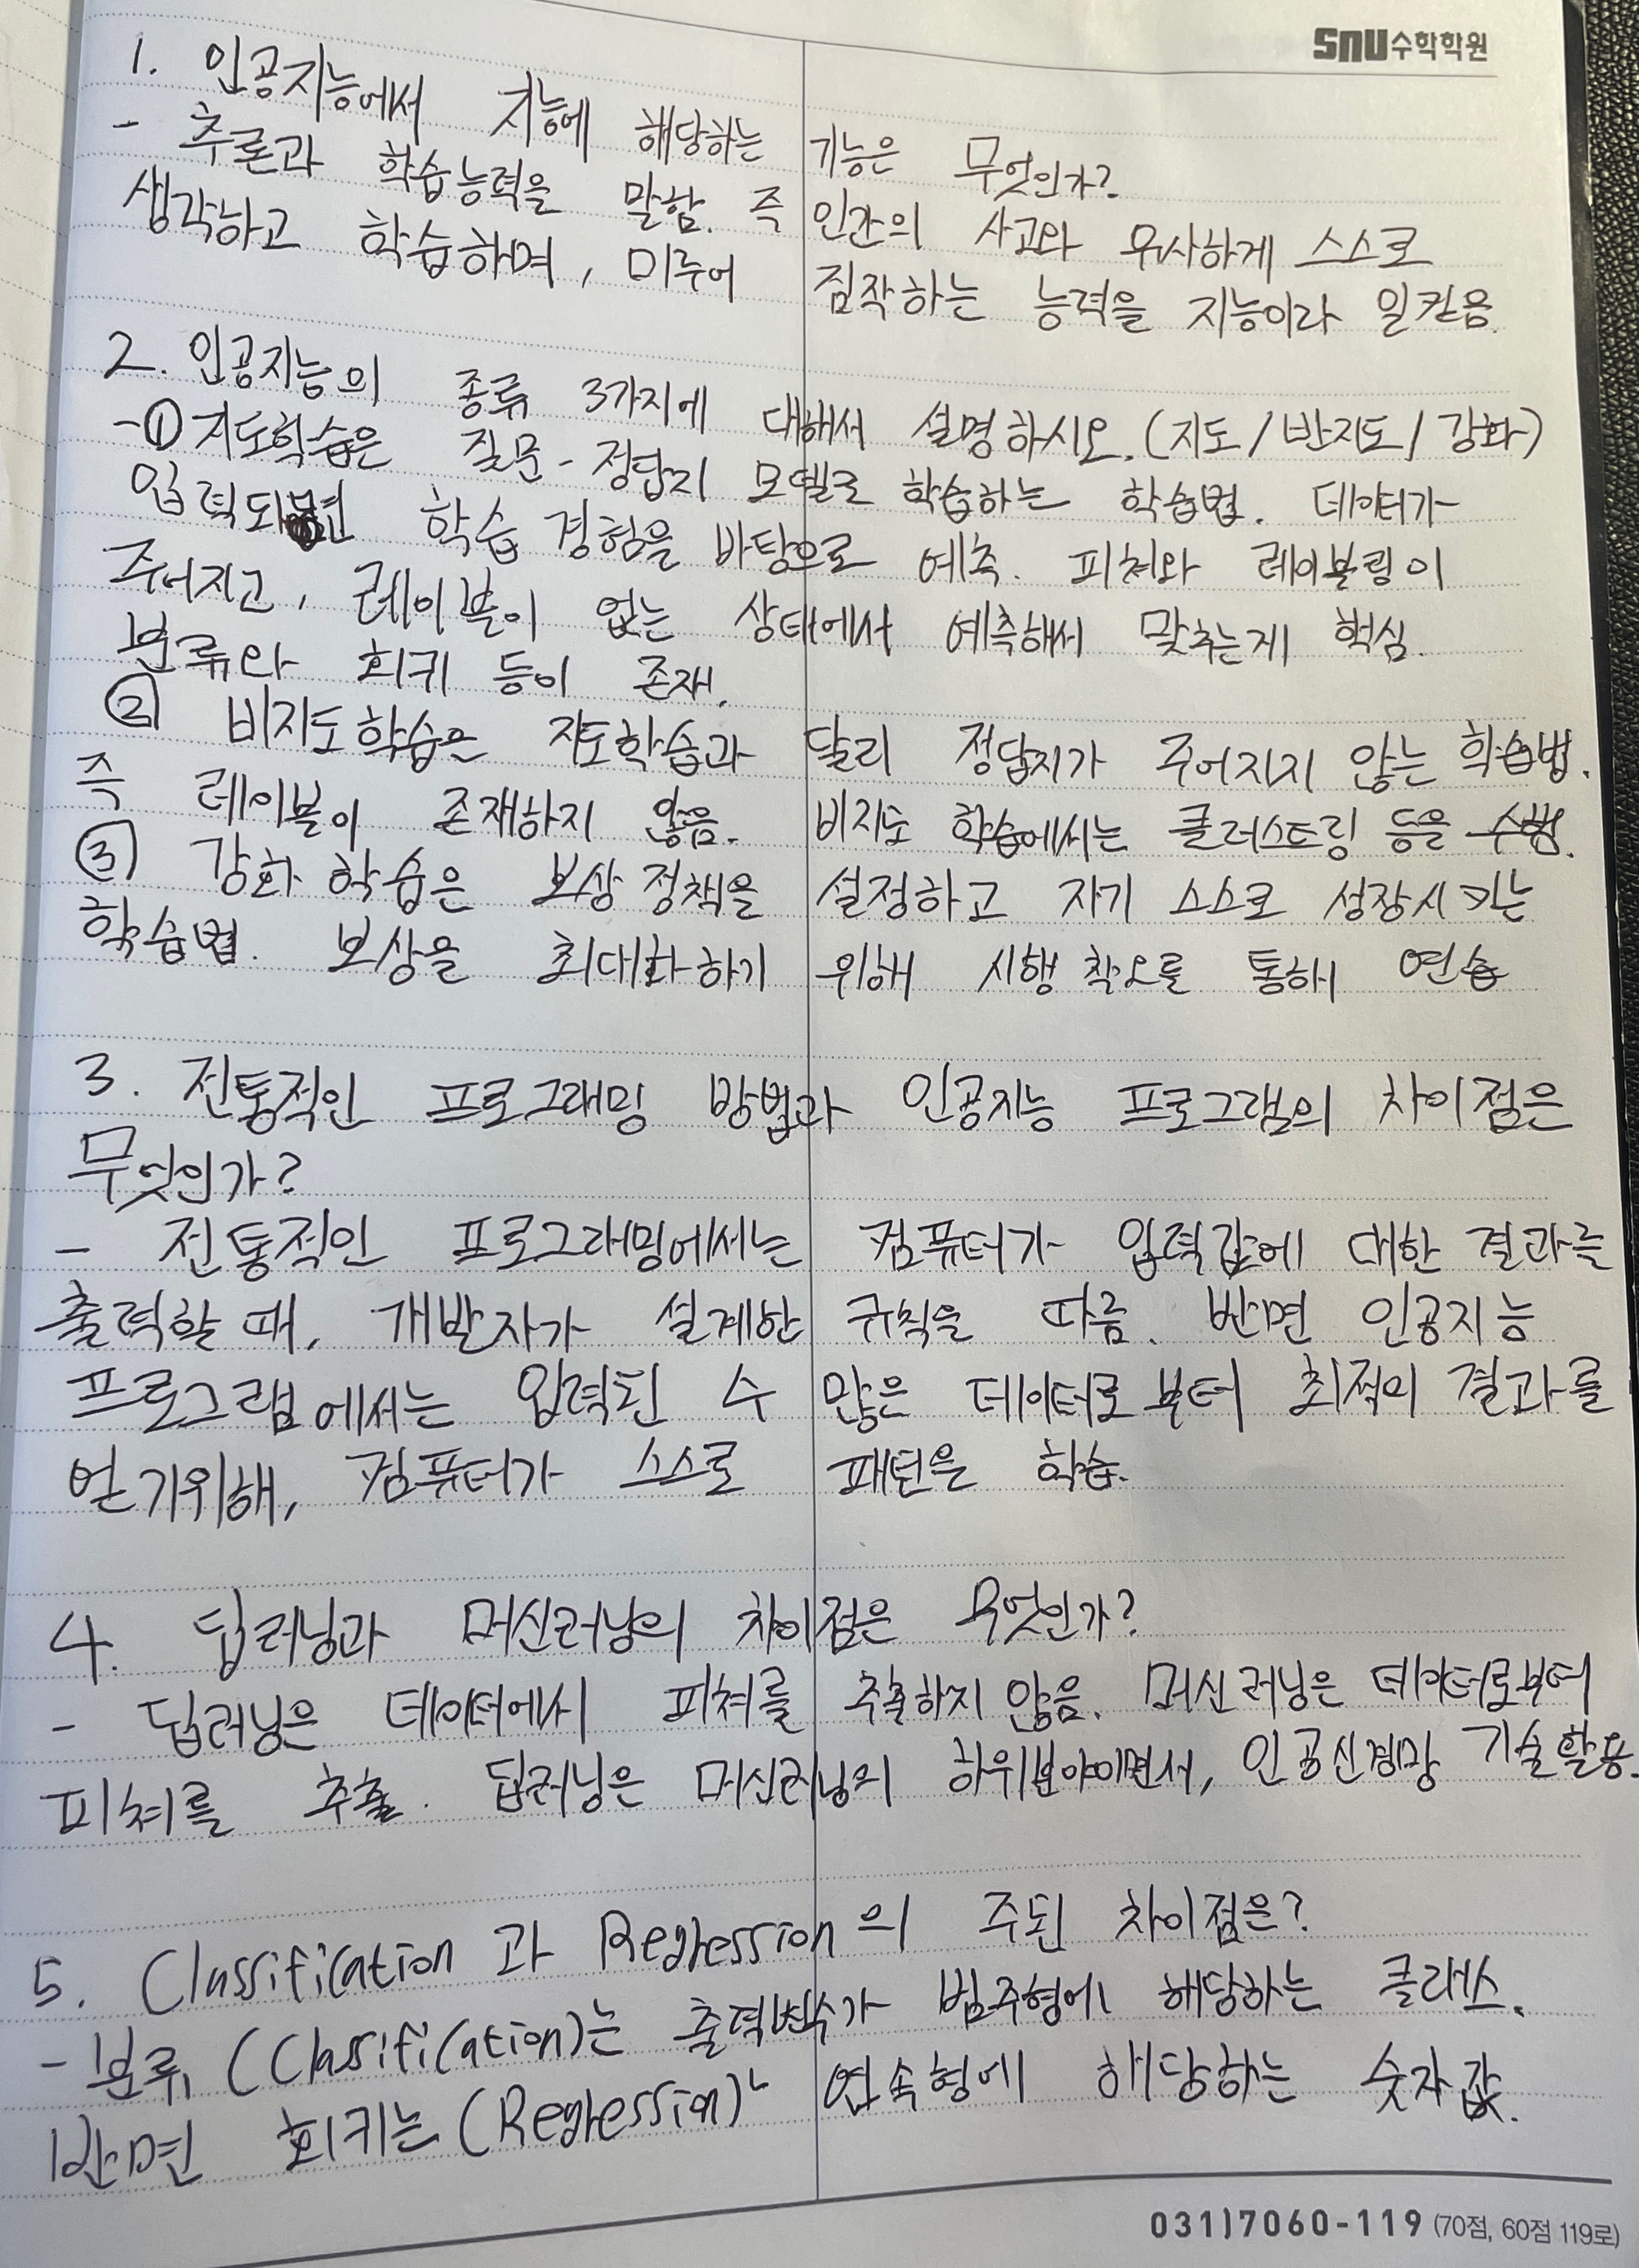 SNU수학학원
1. 인공지능에서 지능에 해당하는 기능은 무엇인가?
- 추론과 학습능력을 말함. 즉 인간의 사고와 유사하게 스스로
생각하고 학습하며, 미루어 짐작하는 능력을 지능이라 일컫음
2. 인공지능의 종류 3가지에 대해서 설명하시오. (지도/반지도/강화)
-① 지도학습은 질문-정답지 모델로 학습하는 학습법. 데이터가
입력되면 학습 경험을 바탕으로 예측. 피쳐와 레이블링이
주어지고, 레이블이 없는 상태에서 예측해서 맞추는게 핵심.
분류와 회귀 등이 존재.
② 비지도학습은 지도학습과 달리 정답지가 주어지지 않는 학습법.
즉 레이블이 존재하지 않음. 비지도 학습에서는 클러스트링 등을 수행.
③ 강화 학습은 보상 정책을 설정하고 자기 스스로 성장시키는
학습법. 보상을 최대화하기 위해 시행 착오를 통해 연습
3. 전통적인 프로그래밍 방법과 인공지능 프로그램의 차이점은
무엇인가?
- 전통적인 프로그래밍에서는 컴퓨터가 입력값에 대한 결과를
출력할 때, 개발자가 설계한 규칙을 따름. 반면 인공지능
프로그램에서는 입력된 수 많은 데이터로부터 최적의 결과를
얻기위해, 컴퓨터가 스스로 패턴을 학습.
4. 딥러닝과 머신러닝의 차이점은 무엇인가?
- 딥러닝은 데이터에서 피쳐를 추출하지 않음. 머신러닝은 데이터로부터
피쳐를 추출. 딥러닝은 머신러닝의 하위분야이면서, 인공신경망 기술 활용.
5. Classification 과 Regression의 주된 차이점은?
- 분류 (Classification)는 출력변수가 범주형에 해당하는 클래스.
반면 회귀는 (Regression) 연속형에 해당하는 숫자값.
031)7060-119 (70점, 60점 119로)